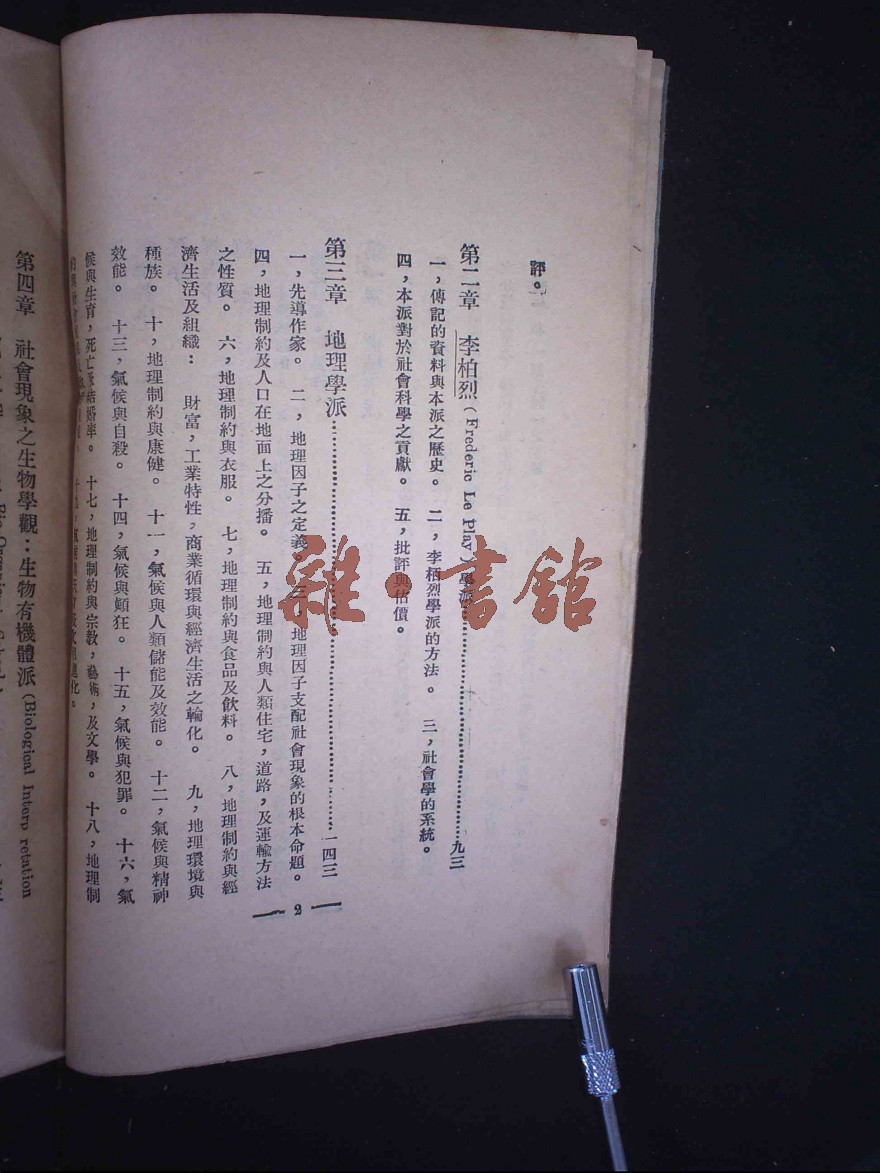 評。
第二章　李柏烈(Frederic Le Play)學派……九三
一，傳記的資料與本派之歷史。　二，李柏烈學派的方法。　三，社會學的系統。
四，本派對於社會科學之貢獻。　五，批評與估價。
第三章　地理學派……一四三
一，先導作家。　二，地理因子之定義。　三，地理因子支配社會現象的根本命題。
四，地理制約及人口在地面上之分播。　五，地理制約與人類住宅，道路，及運輸方法
之性質。　六，地理制約與衣服。　七，地理制約與食品及飲料。　八，地理制約與經
濟生活及組織：　財富，工業特性，商業循環與經濟生活之輪化。　九，地理環境與
種族。　十，地理制約與康健。　十一，氣候與人類儲能及效能。　十二，氣候與精神
效能。　十三，氣候與自殺。　十四，氣候與顛狂。　十五，氣候與犯罪。　十六，氣
候與生育，死亡及結婚率。　十七，地理制約與宗教，藝術，及文學。　十八，地理制
約與社會
化。
2
第四章　社會現象之生物學觀：生物有機體派(Biological Interp retation
雜·書館